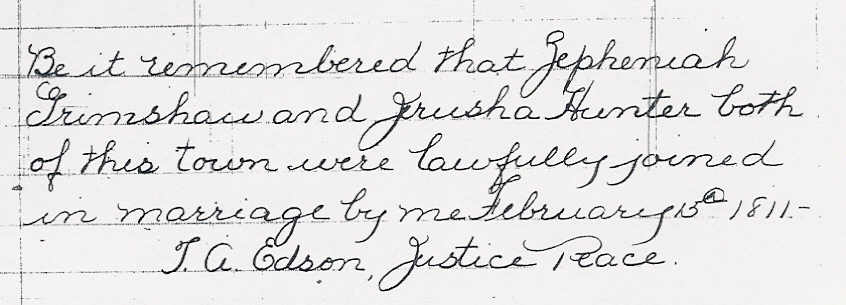 Be it remembered that Zepheniah
Grimshaw and Jrusha Hunter both
of this town were lawfully joined
in marriage by me February 15th 1811.-
T. A. Edson, Justice Peace.